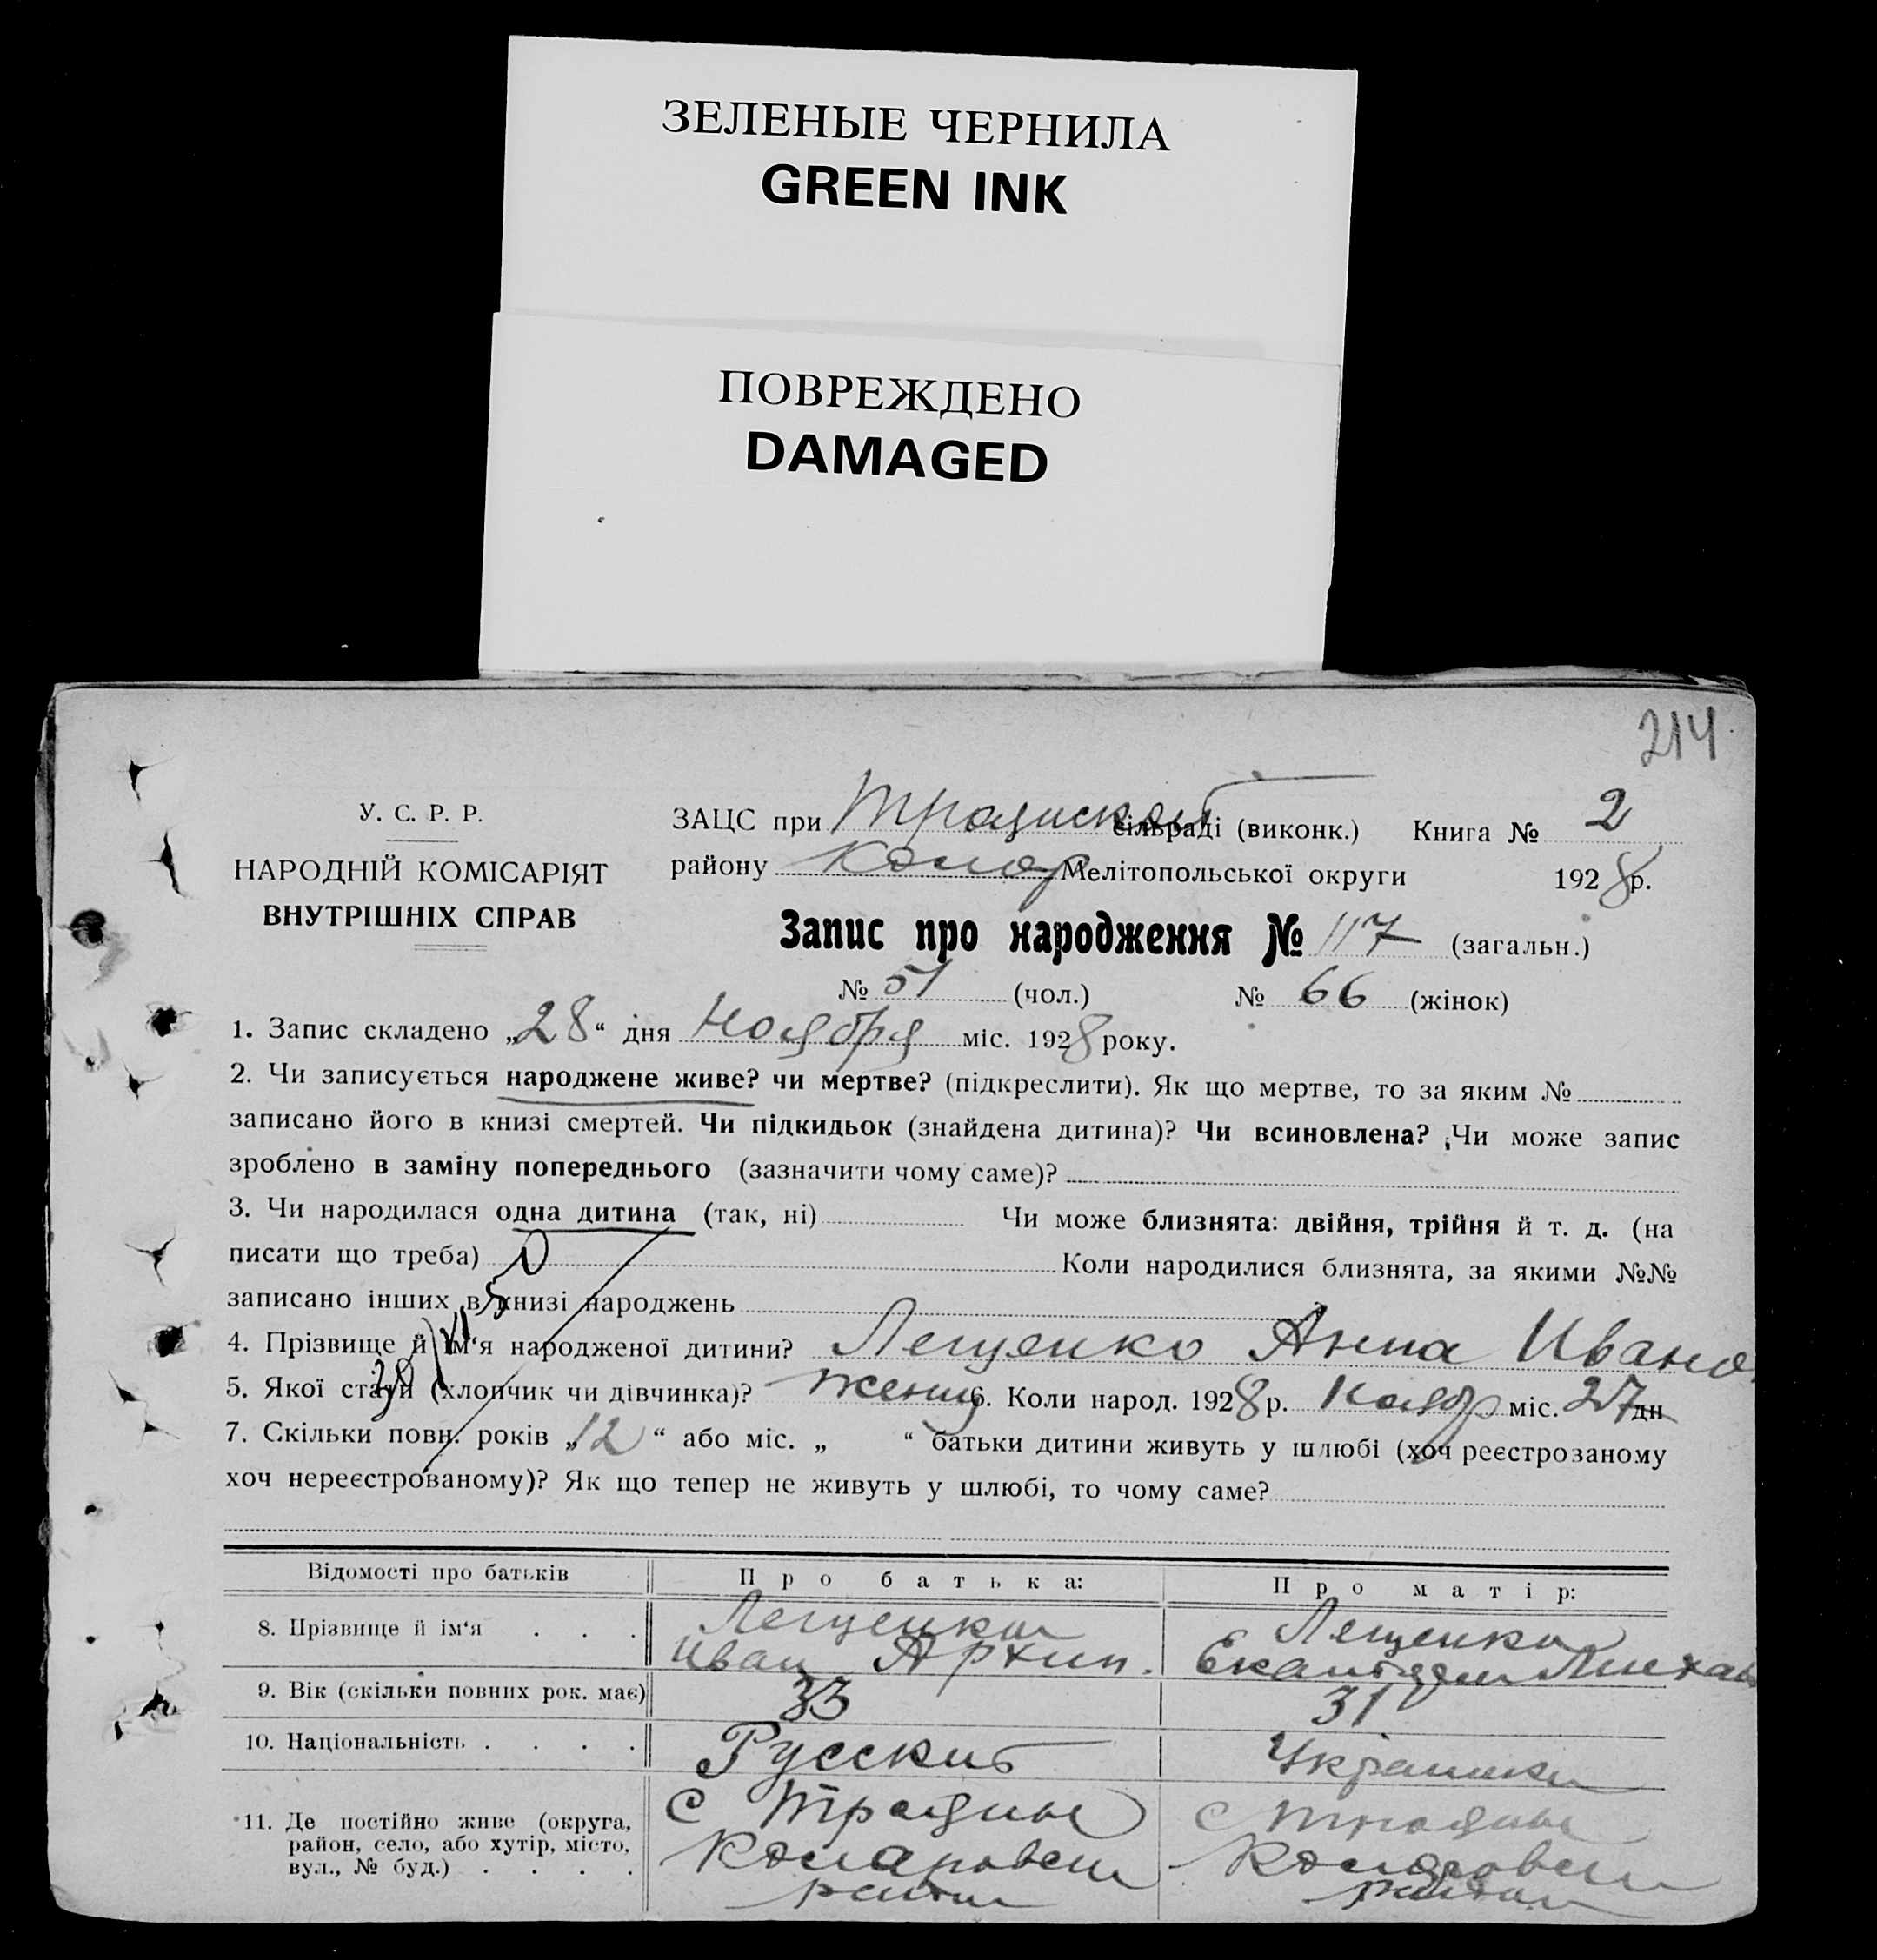 ЗЕЛЕНЫЕ ЧЕРНИЛА
GREEN INK
ПОВРЕЖДЕНО
DAMAGED
214
У. С. Р. Р.
НАРОДНІЙ КОМІСАРІЯТ
ВНУТРІШНІХ СПРАВ
ЗАЦС при сільраді (виконк.) Книга № 2
району Комар Мелітопольської округи 1928 р.
Запис про народження № 117 (загальн.)
№ 51 (чол.) № 66 (жінок)
1. Запис складено „28“ дня Ноября міс. 1928 року.
2. Чи записується народжене живе? чи мертве? (підкреслити). Як що мертве, то за яким №
записано його в книзі смертей. Чи підкидьок (знайдена дитина)? Чи всиновлена? Чи може запис
зроблено в заміну попереднього (зазначити чому саме)?
3. Чи народилася одна дитина (так, ні) Чи може близнята: двійня, трійня й т. д. (на
писати що треба) Коли народилися близнята, за якими №№
записано інших в книзі народжень
4. Прізвище й ім‘я народженої дитини? Лещенко Анна Ивано
5. Якої стати (хлопчик чи дівчинка)? женщ 6. Коли народ. 1928 р. Ноябр міс. 27 дн
7. Скільки повн. років „12“ або міс. „ “ батьки дитини живуть у шлюбі (хоч реєстрозаному
хоч нереєстрованому)? Як що тепер не живуть у шлюбі, то чому саме?
Відомості про батьків Про батька: Про матір:
8. Прізвище й ім‘я . . . Лещенко Лещенко
Иван Архип.
9. Вік (скільки повних рок. має) 33 31
10. Національність . . . . Русский Украинка
11. Де постійно живе (округа,
район, село, або хутір, місто,
вул., № буд.) . . . .